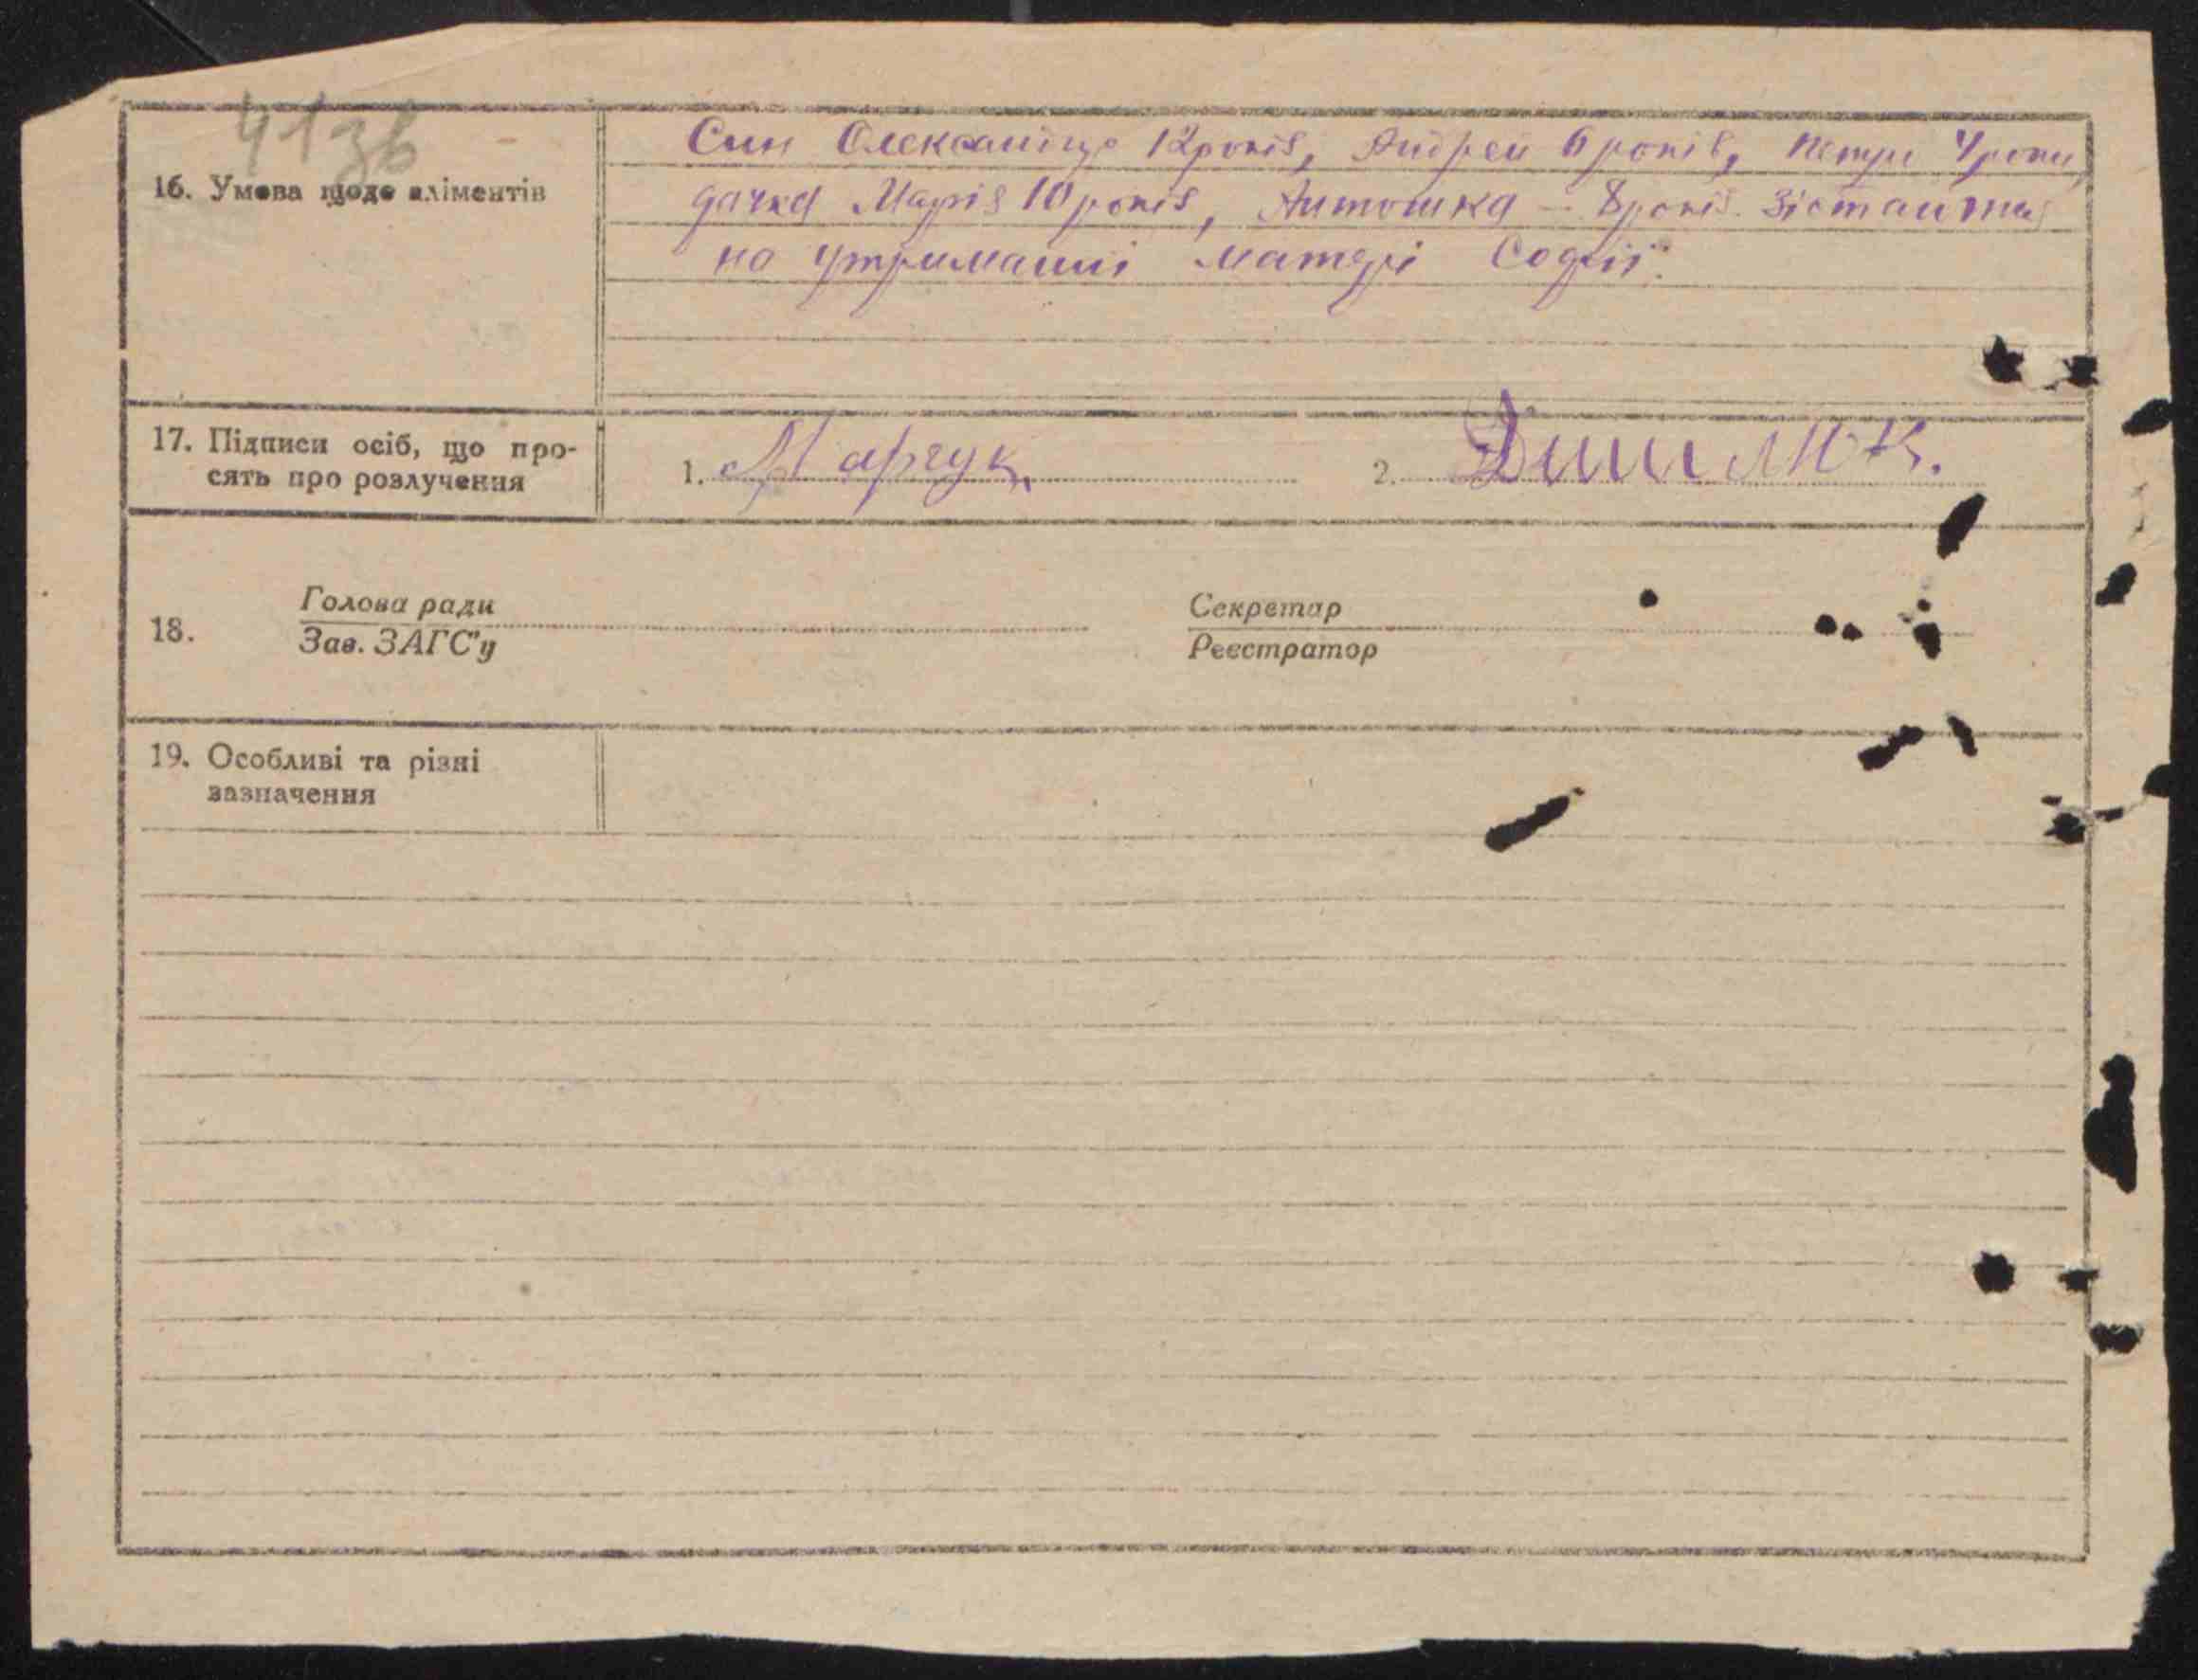 41зв
16. Умова щодо аліментів
Син Олександр 12 років, Андрей 6 років, Петро 4 роки,
дачка Марія 10 років, Антошка – 8 років. Зістаются
на утриманні матері Софії.
17. Підписи осіб, що про-
сять про розлучення
1. Марчук.
2.
18.
Голова ради
Зав. ЗАГС'у
Секретар
Реєстратор
19. Особливі та різні
зазначення